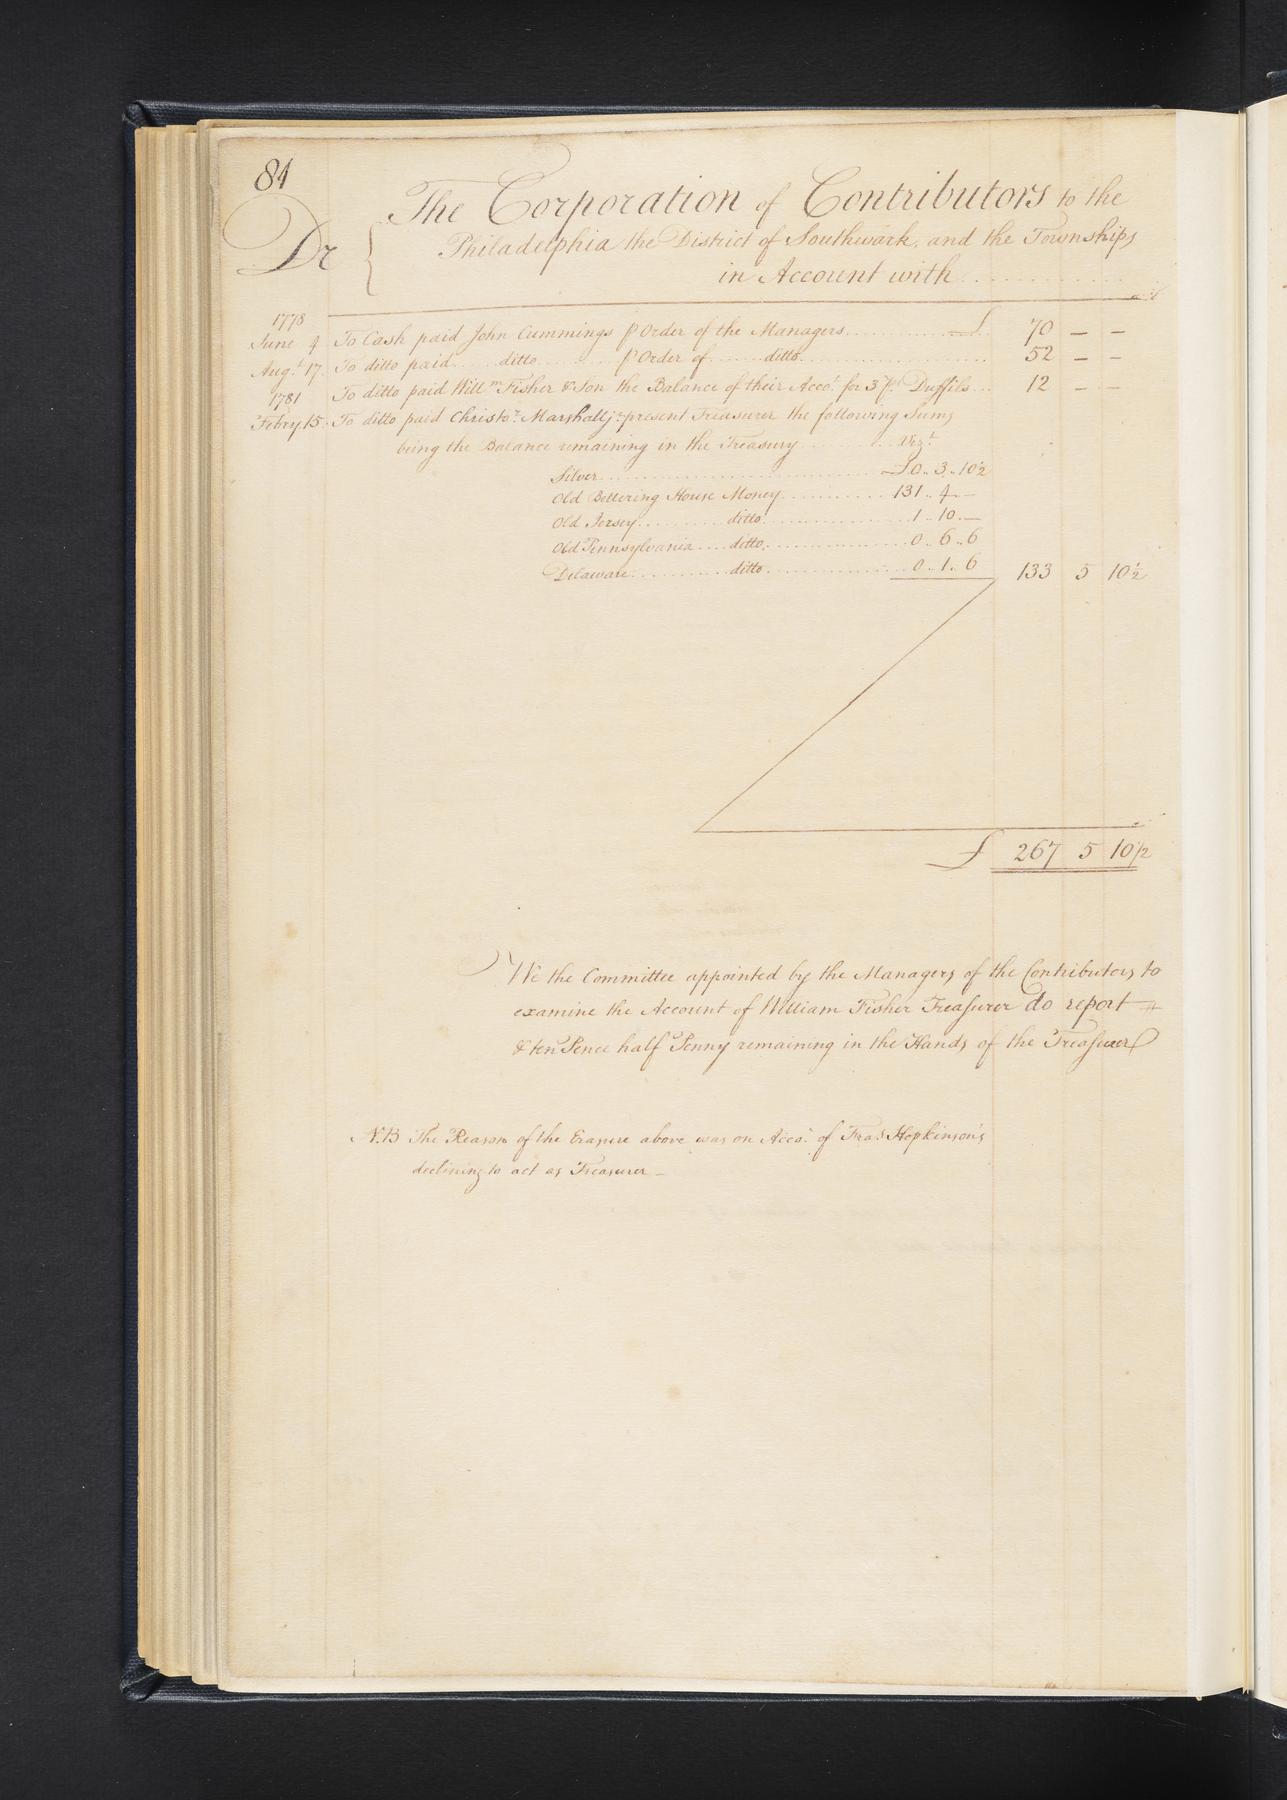 84
Dr { The Corporation of Contributors to the
Philadelphia the District of Southwark, and the Townships
in Account with
1778
June 4 To Cash paid John Cummings ℔ Order of the Managers £ 70 — —
Augt. 17. To ditto paid ditto ℔ Order of ditto 52 — —
To ditto paid Willm. Fisher & Son the Balance of their Acco.t for 3 ps. Duffils 12 — —
1781
Febry 15. To ditto paid Christor. Marshall jr. present Treasurer the following Sums
being the Balance remaining in the Treasury Vizt.
Silver £0..3..10½
Old Bettering House Money 131..4.—
Old Jersey ditto 1..10.—
Old Pennsylvania ditto 0..6..6
Delaware ditto 0..1..6 133 5 10½
£ 267 5 10½
We the Committee appointed by the Managers of the Contributors to
examine the Account of William Fisher Treasurer do report
& ten Pence half Penny remaining in the Hands of the Treasurer
N.B The Reason of the Erasure above was on Acco.t of Fras. Hopkinson's
declining to act as Treasurer —